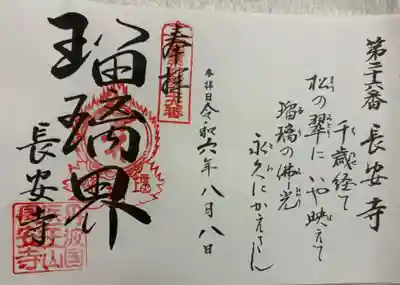 第二十六番 長安寺
千歳経て
松の翠に いや映えて
瑠璃の佛光
永久にかえさん
奉拝
参拝日 令和六年 八月 八日
瑠璃界
長安寺